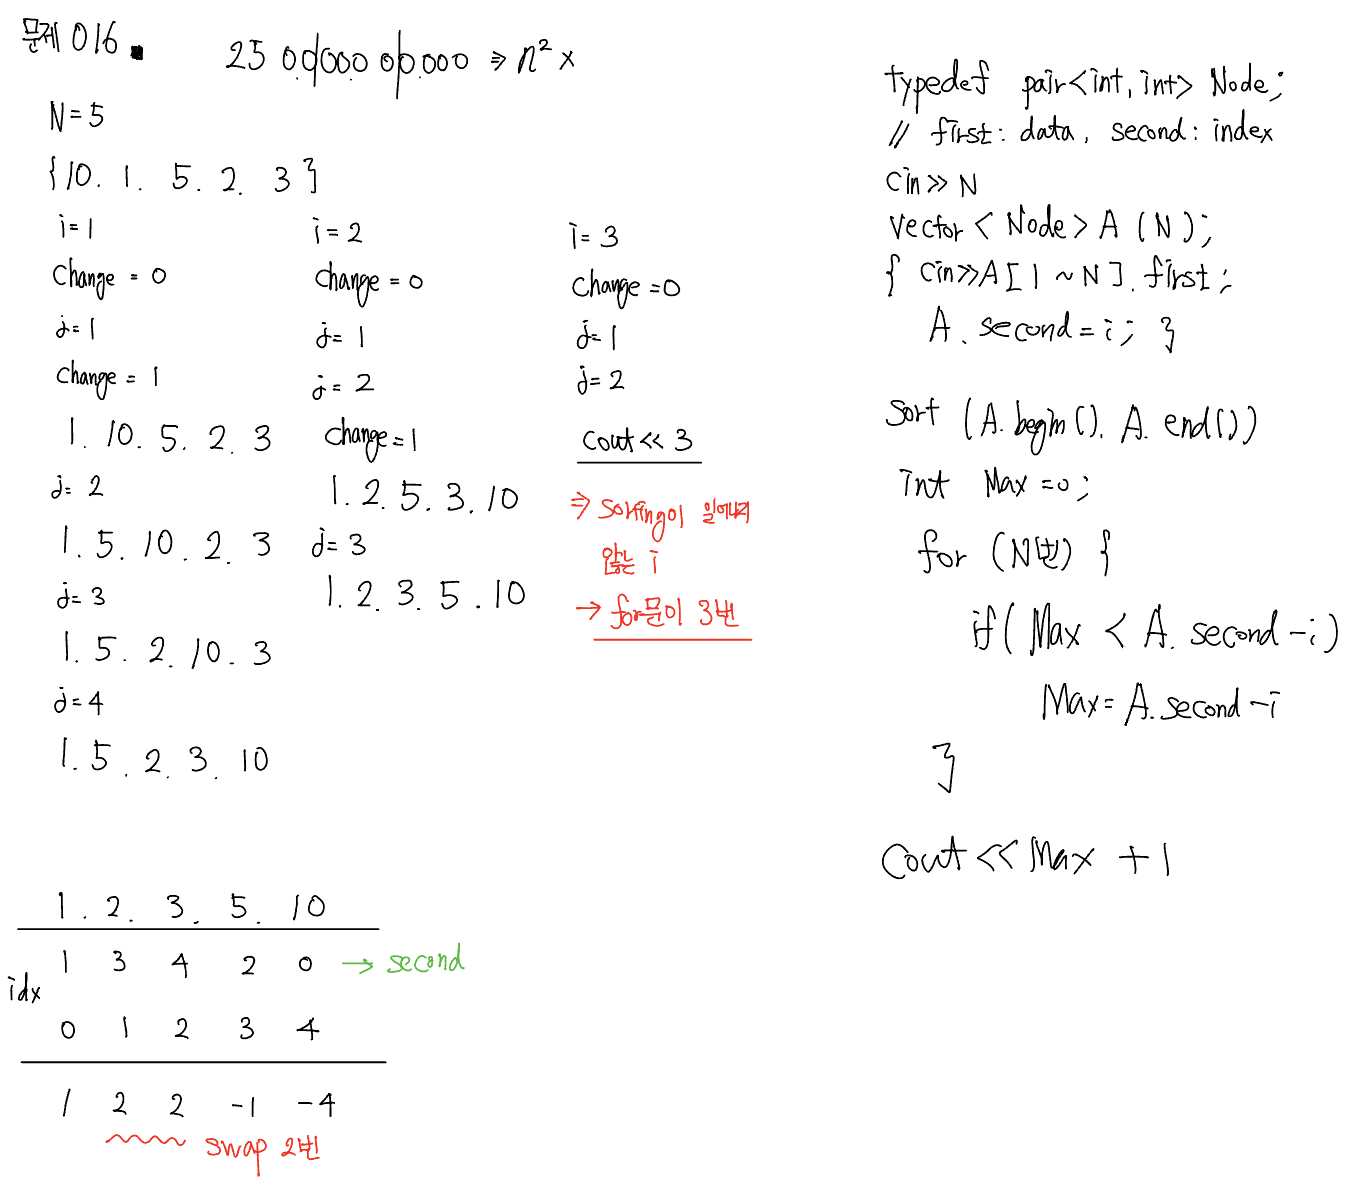 문제 016.
250.0000.00.000 ⇒ n² x
N=5
{10. 1. 5. 2. 3}
i=1
change = 0
j=1
change = 1
1. 10. 5. 2. 3
j=2
1. 5. 10. 2. 3
j=3
1. 5. 2. 10. 3
j=4
1. 5. 2. 3. 10
i=2
change = 0
j=1
j=2
change=1
1. 2. 5. 3. 10
j=3
1. 2. 3. 5. 10
i=3
change=0
j=1
j=2
cout << 3
⇒ sorting이 일어나지
않는 i
→ for문이 3번
1. 2. 3. 5. 10
1 3 4 2 0 → second
idx
0 1 2 3 4
1 2 2 -1 -4
swap 2번
typedef pair<int, int> Node;
// first: data, second: index
cin >> N
vector < Node > A (N);
{ cin>>A[1~N].first;
A.second=i; }
sort (A.begin(). A.end())
int Max=0;
for (N번) {
if( Max < A.second-i)
Max= A.second-i
}
cout << Max +1